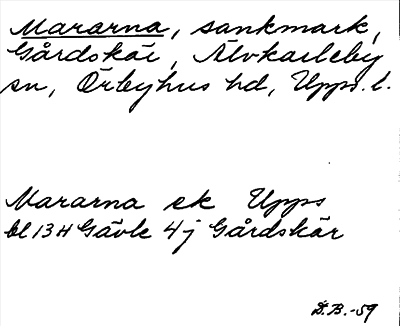 Mararna, sankmark,
Gårdskär, Älvkarleby
sn, Örbyhus hd, Upps. l.
Mararna ek Upps
bl 13H Gävle 4j Gårdskär
D.B.-59